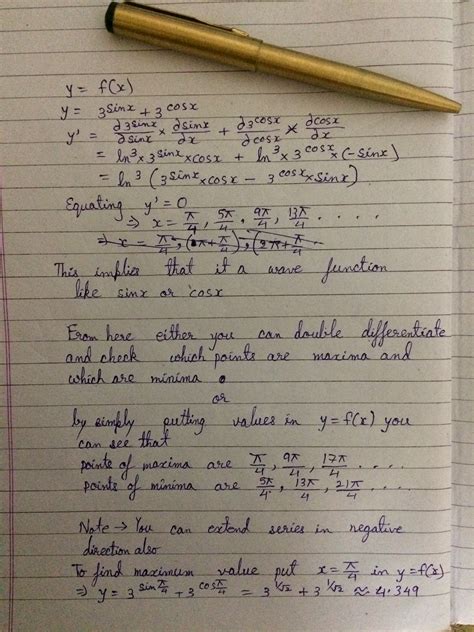 y = f(x)
y = 3^sinx + 3^cosx
y' = ∂3^sinx/∂sinx × ∂sinx/∂x + ∂3^cosx/∂cosx × ∂cosx/∂x
= ln3 × 3^sinx × cosx + ln3 × 3^cosx × (-sinx)
= ln3 (3^sinx × cosx - 3^cosx × sinx)
Equating y' = 0
⇒ x = π/4, 5π/4, 9π/4, 13π/4 . . . .
⇒ x = π/4, (π+π/4), (2π+π/4
This implies that it a wave function
like sinx or cosx
From here either you can double differentiate
and check which points are maxima and
which are minima.
or
by simply putting values in y = f(x) you
can see that
points of maxima are π/4, 9π/4, 17π/4 . . . .
points of minima are 5π/4, 13π/4, 21π/4 . . . .
Note → You can extend series in negative
direction also
To find maximum value put x = π/4 in y = f(x)
⇒ y = 3^sin π/4 + 3^cos π/4 = 3^1/√2 + 3^1/√2 ≈ 4.349